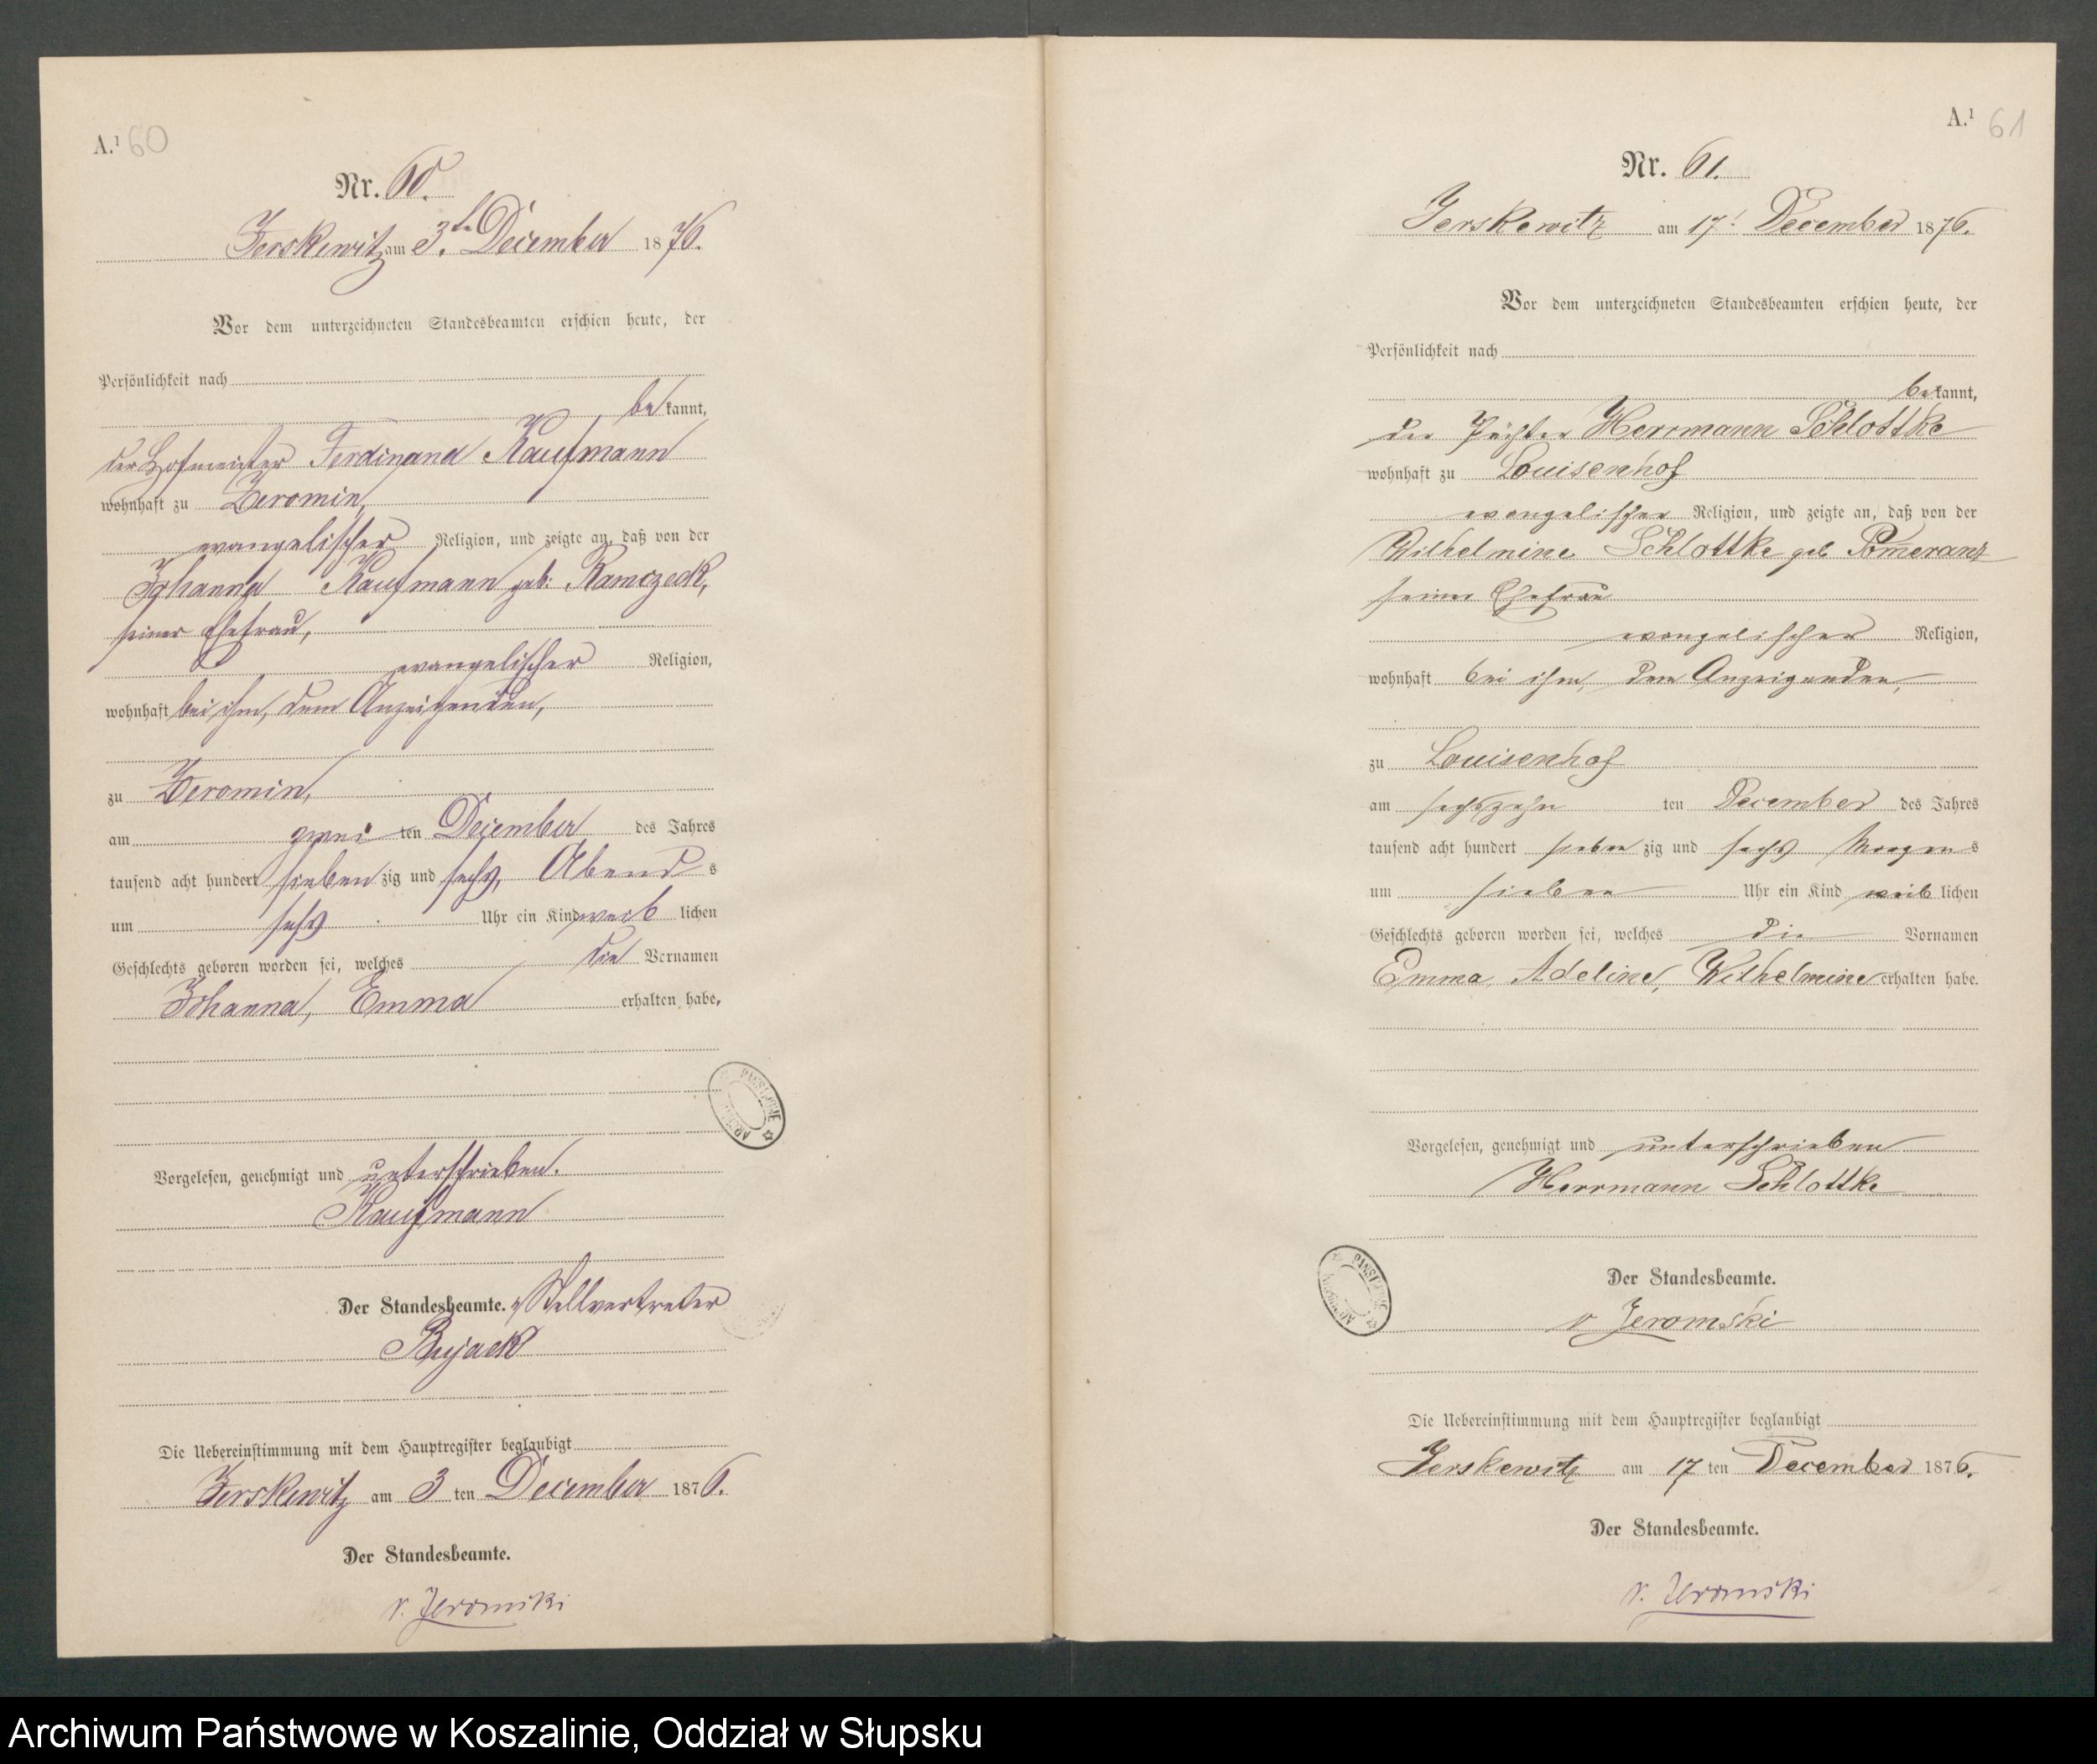 A.¹ 60
Nr. 60.
Jerskewitz am 3. ten December 1876.
Vor dem unterzeichneten Standesbeamten erschien heute, der
Persönlichkeit nach
bekannt,
der Hofmeister Ferdinand Kaufmann
wohnhaft zu Zeromin,
evangelischer Religion, und zeigte an, daß von der
Johanna Kaufmann geb: Ramczeck,
seiner Ehefrau,
evangelischer Religion,
wohnhaft bei ihm, dem Anzeigenden,
zu Zeromin,
am zwei ten December des Jahres
tausend acht hundert sieben zig und sechs, Abend s
um sechs Uhr ein Kind weib lichen
Geschlechts geboren worden sei, welches die Vornamen
Johanna, Emma erhalten habe,
Vorgelesen, genehmigt und unterschrieben.
Kaufmann
Der Standesbeamte. Stellvertreter
Bujack
Die Uebereinstimmung mit dem Hauptregister beglaubigt
Jerskewitz am 3 ten December 1876.
Der Standesbeamte.
v. Jeromski
A.¹ 61
Nr. 61.
Jerskewitz am 17. December 1876.
Vor dem unterzeichneten Standesbeamten erschien heute, der
Persönlichkeit nach
bekannt,
der Pächter Herrmann Schlottke
wohnhaft zu Louisenhof
evangelischer Religion, und zeigte an, daß von der
Wilhelmine Schlottke geb Pomeranz
seiner Ehefrau
evangelischer Religion,
wohnhaft bei ihm, dem Anzeigenden,
zu Louisenhof
am sechszehn ten December des Jahres
tausend acht hundert sieben zig und sechs Morgen s
um sieben Uhr ein Kind weib lichen
Geschlechts geboren worden sei, welches die Vornamen
Emma, Adeline, Wilhelmine erhalten habe.
Vorgelesen, genehmigt und unterschrieben
Herrmann Schlottke
Der Standesbeamte.
v Jeromski
Die Uebereinstimmung mit dem Hauptregister beglaubigt
Jerskewitz am 17 ten December 1876.
Der Standesbeamte.
v. Jeromski
Archiwum Państwowe w Koszalinie, Oddział w Słupsku